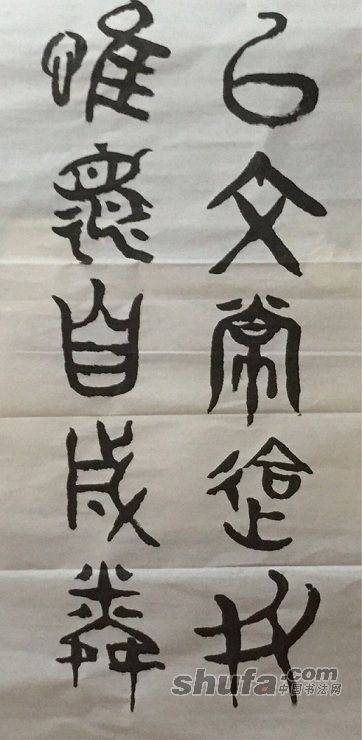 以文常會友
惟德自成鄰
shufa.com
中国书法网